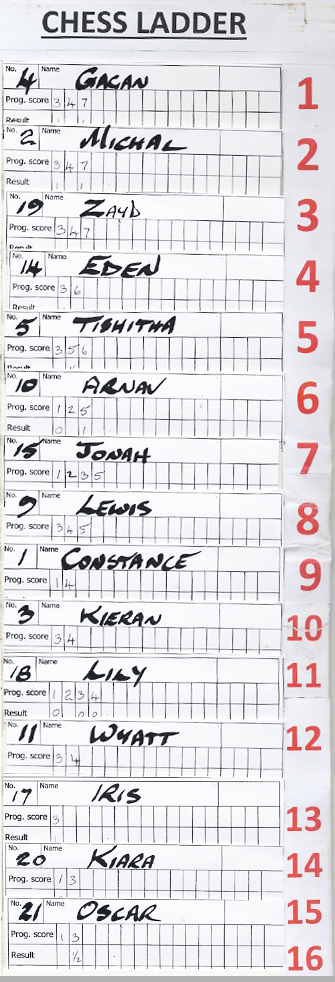 CHESS LADDER
No. 4 Name GAGAN 1
Prog. score 3 4 7
Result
No. 2 Name MICHAL 2
Prog. score 3 4 7
Result 1 1
No. 19 Name ZAYD 3
Prog. score 3 4 7
Result
No. 14 Name EDEN 4
Prog. score 3 6
Result
No. 5 Name TISHITHA 5
Prog. score 3 5 6
No. 10 Name ARNAV 6
Prog. score 1 2 5
Result 0 1
No. 15 Name JONAH 7
Prog. score 1 2 3 5
No. 9 Name LEWIS 8
Prog. score 3 4 5
No. 1 Name CONSTANCE 9
Prog. score 1 4
No. 3 Name KIERAN 10
Prog. score 3 4
No. 18 Name LILY 11
Prog. score 1 2 3 4
Result 0 0 0
No. 11 Name WYATT 12
Prog. score 3 4
No. 17 Name IRIS 13
Prog. score 3
Result
No. 20 Name KIARA 14
Prog. score 1 3
No. 21 Name OSCAR 15
Prog. score 1 3
Result ½ 16